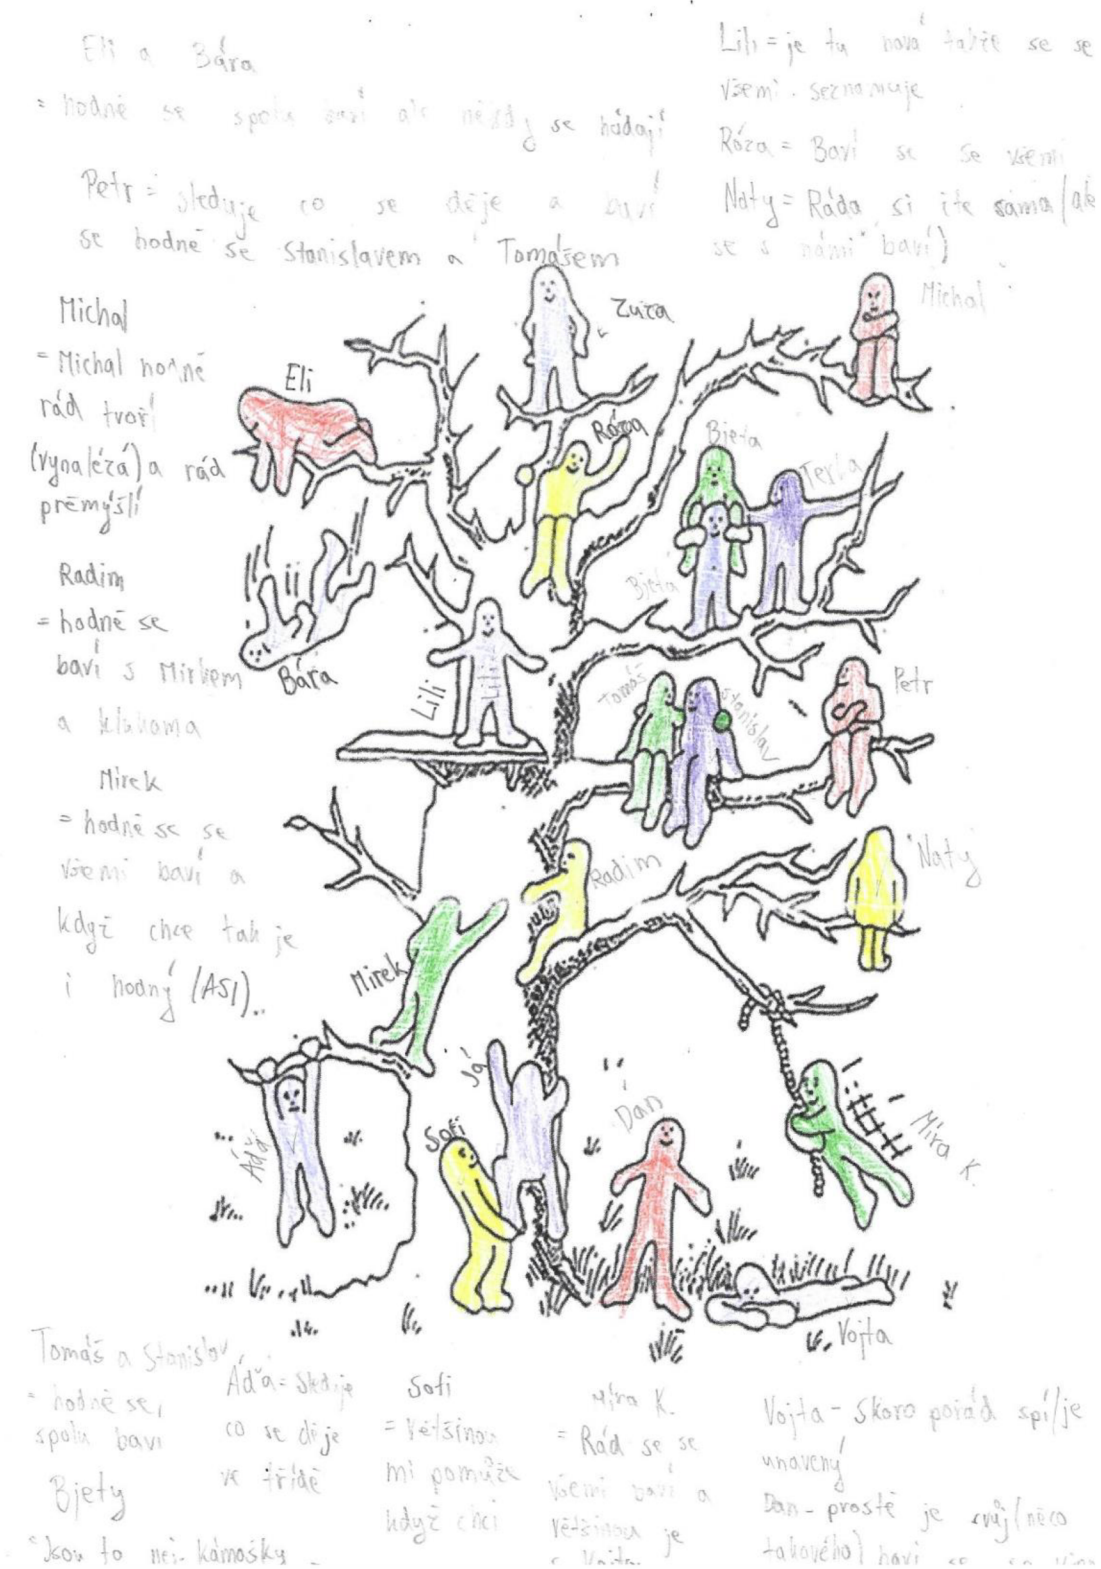 Eli a Bára
= hodně se spolu baví ale někdy se hádají
Petr = sleduje co se děje a baví
se hodně se Stanislavem a Tomášem
Lili = je tu nová takže se se
všemi seznamuje
Róza = Baví se se všemi
Naty = Ráda si je sáma (ale
se s námi baví)
Michal
= Michal hodně
rád tvoří
(vynalézá) a rád
přemýšlí
Radim
= hodně se
baví s Mirkem
a klukama
Mirek
= hodně se se
všemi baví a
když chce tak je
i hodný (ASI)..
Zuza
Michal
Eli
Róza
Bjeta
Terka
Bjeta
Bára
Lili
Lili
Tomáš
Stanislav
Petr
Radim
Naty
Mirek
Já
Áďá
Sofi
Dan
Míra K.
Vojta
Tomáš a Stanislav
= hodně se
spolu baví
Bjety
Jsou to nej. kámošky
Áďá = Sleduje
co se děje
ve třídě
Sofi
= většinou
mi pomůže
když chci
Míra K.
= Rád se se
všemi baví a
většinou je
s Vojtou
Vojta - Skoro pořád spí/je
unavený
Dan - prostě je svůj (něco
takového) baví se se